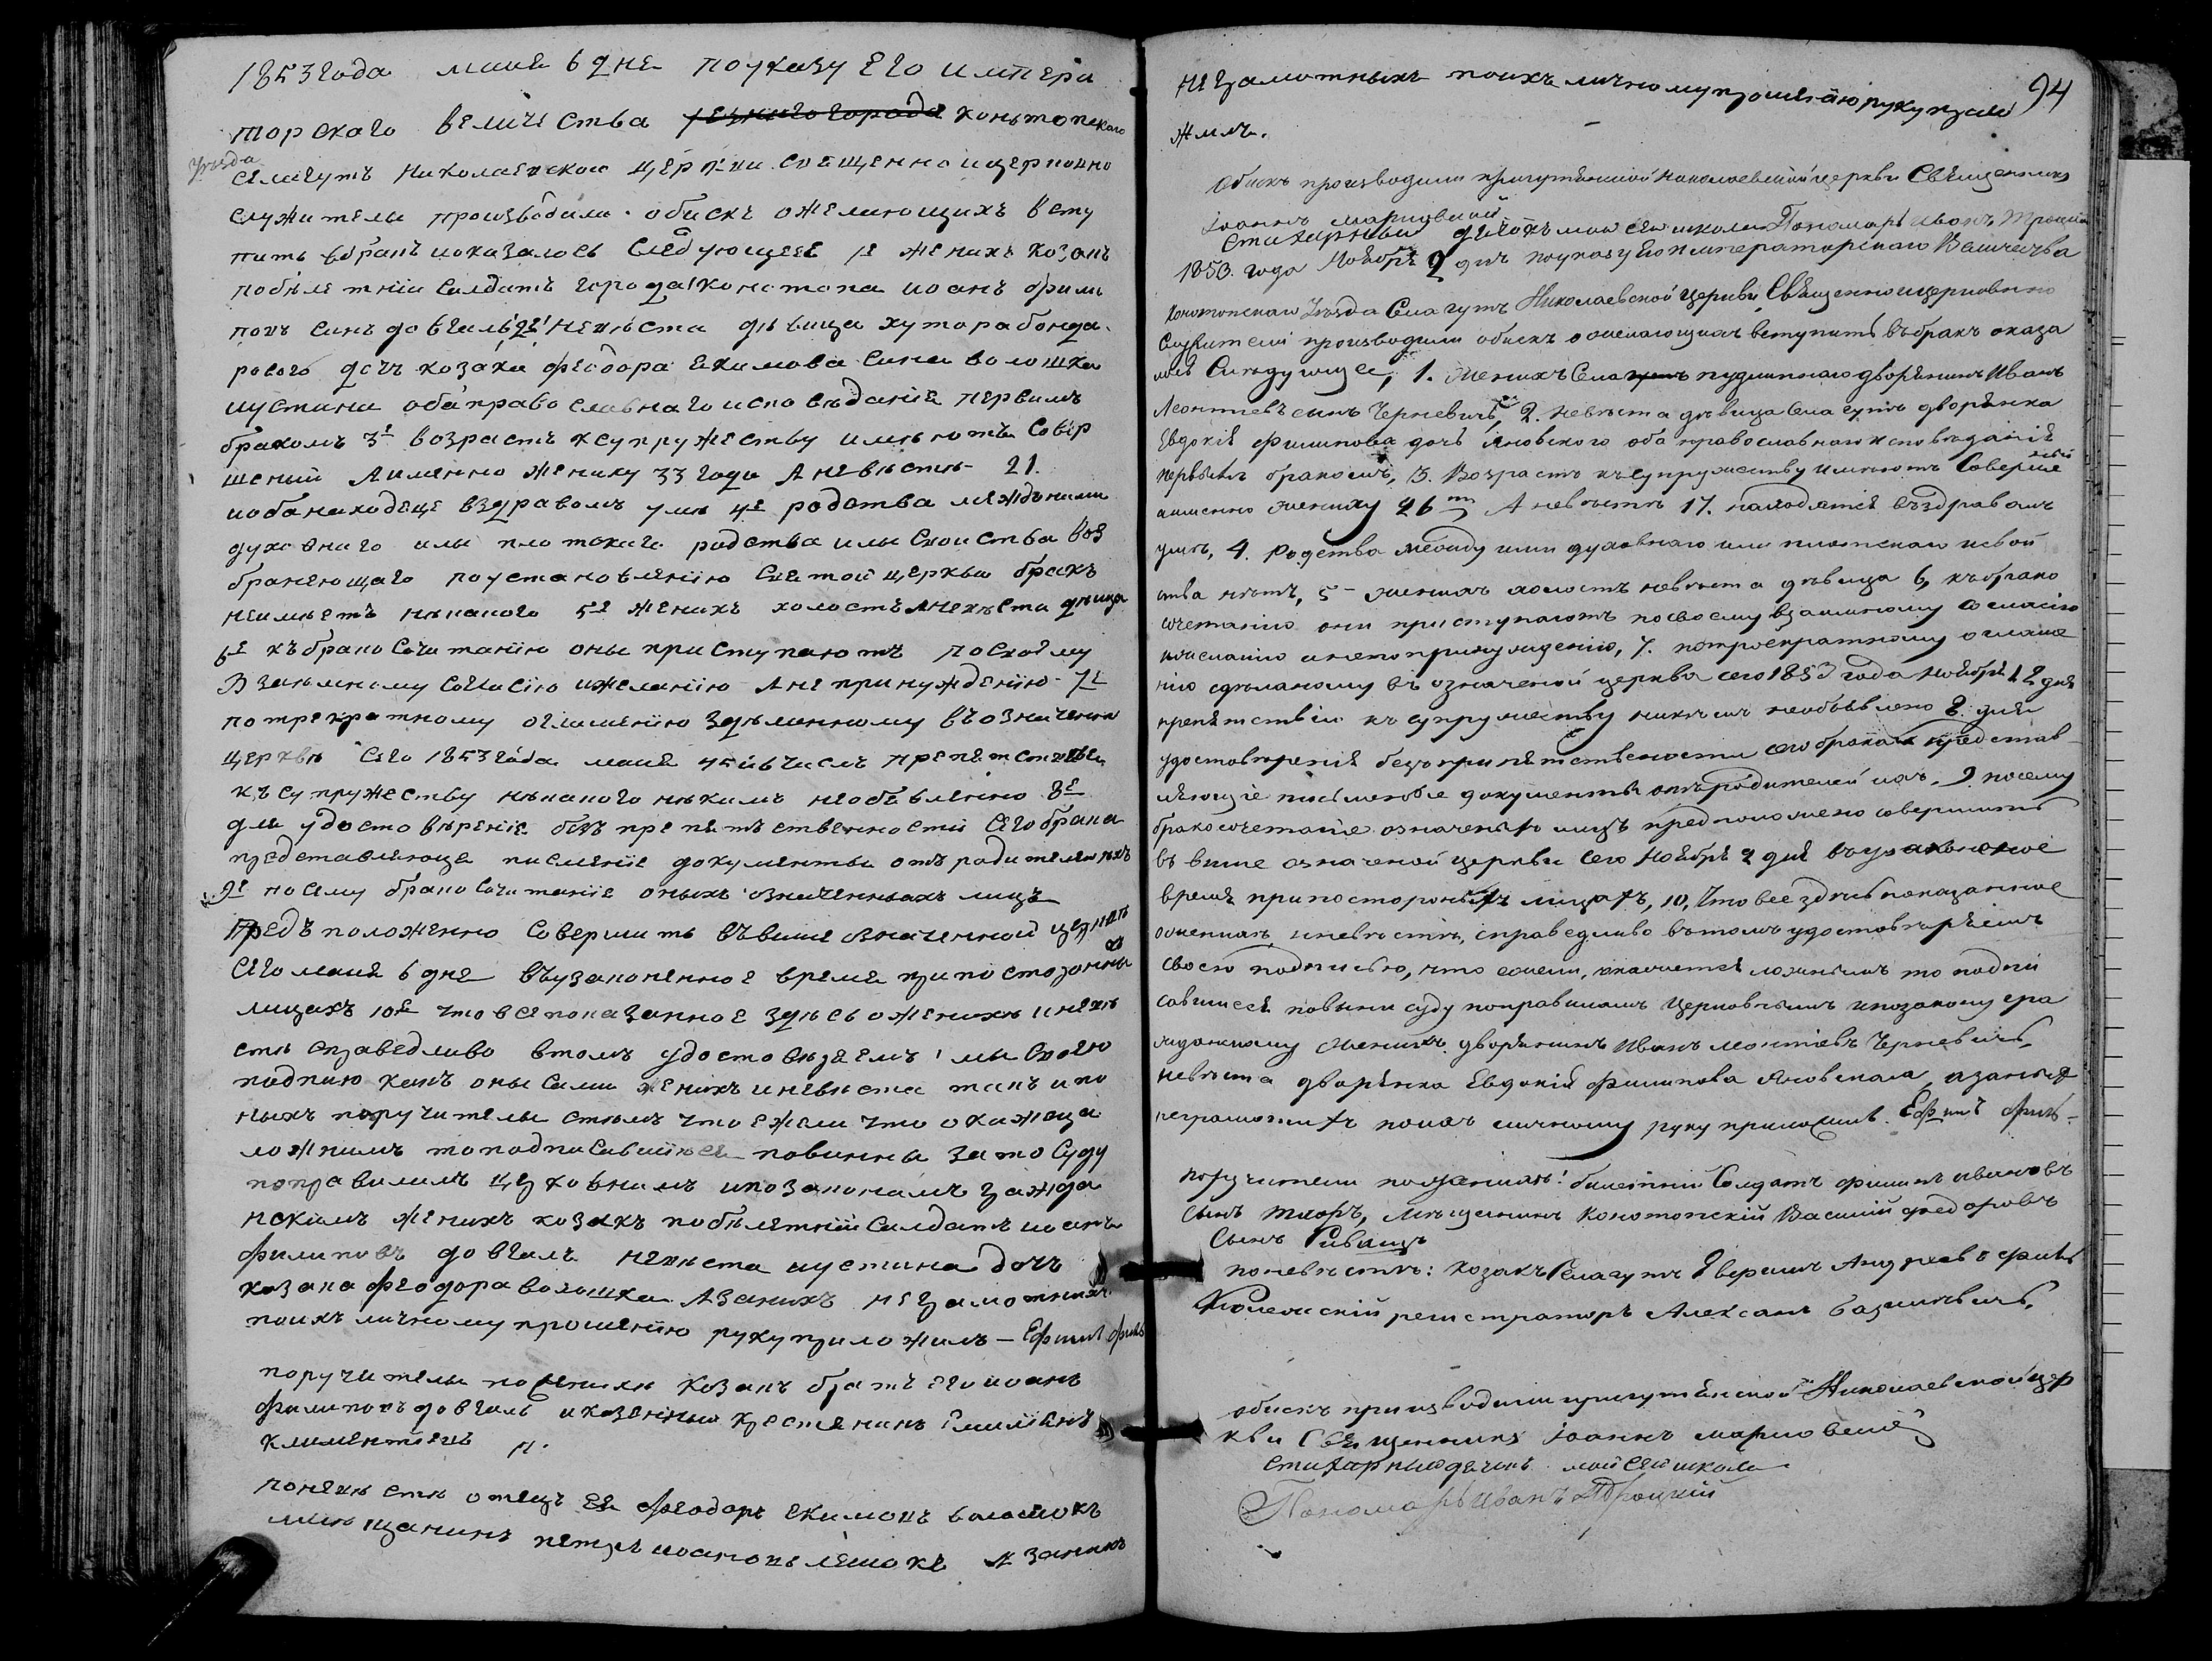 1853 года маия 6 дня по указу Его импера
торского величества конотопскаго
уезда
села гутъ Николаевской церкви свещенно ицерковно
служители произвадили обискъ ожелающихъ всту
пить вбракъ иоказалось Следующее 1е женихъ козакъ
побилетнiи Салдатъ города конотопа иоанъ фили
повъ синъ довгаль 2е невѣста дѣвица хутора бонда
рового дочъ козака феодора екимова сина волошка
иустина оба православнаго исповѣданiе первимъ
бракомъ 3е возрастъ ксупружеству имѣютъ Совер
шений Аименно жениху 33 года Аневѣстѣ 21.
иобанаходеце вздравомъ умѣ 4е родства междуними
духовнаго или плотскаго родства или Своиства воз
бранеющаго поустановлению Святой церкви бракъ
неимѣетъ нѣкакого 5е женихъ холостъ Аневѣста дѣвица
6е къ бракосочитанiю они приступаютъ посвоему
Взаимному согласiю ижеланiю Ане принужденiю 7е
потрекратному оглашенiю зделанному въозначенной
церквѣ Сего 1853 года маия числъ препетствiи
къ супружеству нѣкакого нѣкимъ необевленно 8е
для удостовѣренiе безъпрепетственности Сего брака
представляюще писмение документи отъ родителей ихъ
9е посему бракосочитанiе оныхъ означенныхъ лицъ
Предъположенно Совершить въвише означенной церквѣ
Сего маия 6 дня въузаконенное время припосторонни
лицахъ 10е что всепоказанное здѣсь оженихѣ иневѣ
стѣ справедливо втомъ удостовѣряемъ мы Своею
подписю какъ оны Сами женихъ иневѣста такъ ипо
ныхъ поручители стемъ что ежели что окажеца
ложнимъ топодписавшiеся повинны зато Суду
поправиламъ церковнимъ ипозаконамъ гражда
нскимъ женихъ козакъ побилетнiй Салдатъ иоанъ
филиповъ довгаль невѣста иустина дочъ
козака феодора волошка Азанихъ неграмотнихъ
поихъ личному прошенiю руку приложилъ – Ефимъ
поручители пожениху козакъ братъ его иоанъ
филиповъ довгаль иказенный крестянинъ Емилiянъ
климентiевъ
поневѣстѣ отецъ ея феодоръ екимовъ волошокъ
мѣщанинъ петръ иоановъ лешокъ Азанихъ
94
неграмотныхъ поихъ личному прошенiю руку прило
жилъ.
Обискъ производили пригутянской николаевской церкви Священникъ
Iоаннъ марковскiй
Стихарный дячокъ моисей школа Пономарь Иванъ Троцкiй
1853. года Ноября 2 дня поуказу Его императорскаго Величества
конотопскаго Уезда Села гутъ Николаевской церкви Свещенноицерковно
Служители производили обискъ ожелающихъ вступить въбракъ оказа
лось Следующее, 1. Женихъ Села дворянинъ Иванъ
Леонтiевъ синъ Черневичъ, 2. Невѣста дѣвица Села гутъ дворянка
Евдокiя филипова дочь Яновского оба православнаго исповѣданiя
первымъ бракомъ, 3. Возрастъ къ супружеству имѣютъ Соверше
ный
аименно жениху 26 Аневѣстѣ 17. находятся въздравомъ
умѣ, 4. родства между ими духовнаго или плотскаго исвой
ства нѣтъ, 5 женихъ холостъ невѣста дѣвица 6, къбрако
сочетанiю они приступаютъ посвоему взаимному согласiю
ижеланiю анепопринужденiю, 7. потроекратному оглаше
нiю сдѣланому въ означеной церкви сего 1853 года ноября 12 дня
препятствiи къ супружеству никемъ необъявлено 8. для
удостоверенiя безъпрепятствености сего брака представ
ляюще писменые документы отъродителей ихъ. 9. посему
бракосочетанiе означеныхъ лицъ предположено совершить
въ више означеной церкви сего Ноября 2 дня въузаконеное
время припостороныхъ лицахъ, 10. Что все здѣсь показанное
оженихѣ, иневѣстѣ, справедливо въ томъ удостовѣряемъ
своею подписью, что ежели, окажется ложнымъ то подпи
савшиеся повины суду поправиламъ церковнымъ ипозакону гра
жданскому Женихъ дворянинъ Иванъ Леонтiевъ Черневичъ,
невѣста дворянка Евдокiя филипова Яновская, азаныхъ
неграмотныхъ поихъ личному руку приложилъ. Ефимъ
поручители пожениху: билетнiй Солдатъ филипъ ивановъ
Сынъ, Мѣщанинъ Конотопскiй Василiй федоровъ
Сынъ
поневѣстѣ: Козакъ Села гутъ Аверкий Андреевъ
Колежскiй регистраторъ Александъ базилевичъ.
обискъ производили пригутянской Николаевской цер
кви Священникъ Iоаннъ марковскiй
Стихарныйдячокъ моисей школа
Пономарь Иванъ Троцкiй